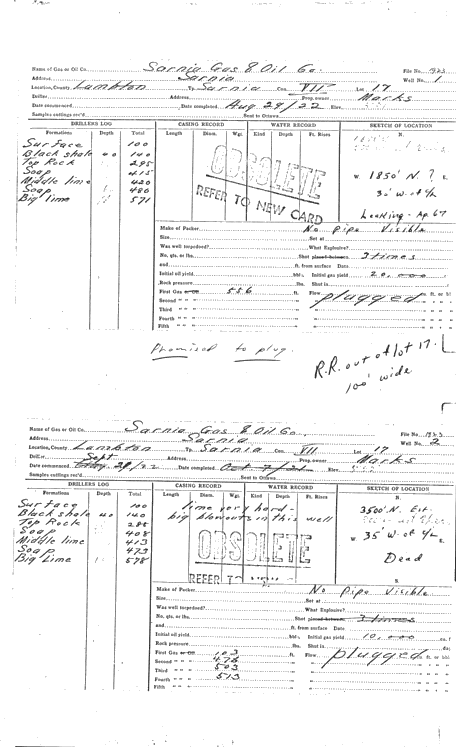 Name of Gas or Oil Co. Sarnia Gas & Oil Co. File No. 1923
Address Sarnia Well No. 1
Location, County Lambton Tp. Sarnia Con. VII Lot 17
Driller Address Prop. owner Marks
Date commenced Date completed Aug 29/22 Elev.
Samples cuttings rec'd Sent to Ottawa
DRILLERS LOG CASING RECORD WATER RECORD SKETCH OF LOCATION
Formations Depth Total Length Diam. Wgt. Kind Depth Ft. Rises N.
Surface 100
Black shale 40 140
Top Rock 295
Soap 415
Middle lime 420
Soap 480
Big lime 571
OBSOLETE
REFER TO NEW CARD
W. 1850' N. ? E.
30' W of ½
Leaking - Ap. 67
Make of Packer No pipe Visible
Size Set at
Was well torpedoed? What Explosive?
No. qts. or lbs. Shot placed between 3 times
and ft. from surface Date
Initial oil yield bbls. Initial gas yield 20,000
Rock pressure lbs. Shut in
First Gas or Oil 556 ft. Flow plugged ft. or bbl
Second " "
Third " "
Fourth " "
Fifth " "
Promised to plug.
R.R. out of lot 17.
100' wide
Name of Gas or Oil Co. Sarnia Gas & Oil Co. File No. 1923
Address Sarnia Well No. 2
Location, County Lambton Tp. Sarnia Con. VII Lot 17
Driller Sept Address Prop. owner Marks
Date commenced 29/22 Date completed Oct 7/22 Elev.
Samples cuttings rec'd Sent to Ottawa
DRILLERS LOG CASING RECORD WATER RECORD SKETCH OF LOCATION
Formations Depth Total Length Diam. Wgt. Kind Depth Ft. Rises N.
Surface 100
Black shale 40 140
Top Rock 288
Soap 408
Middle lime 413
Soap 473
Big Lime 578
lime very hard -
big blowouts in this well
OBSOLETE
REFER TO NEW
3500' N.
W. 35' W of ½ E.
Dead
S.
Make of Packer No Pipe Visible
Size Set at
Was well torpedoed? What Explosive?
No. qts. or lbs. Shot placed between 3 times
and ft. from surface Date
Initial oil yield bbls. Initial gas yield 10,000
Rock pressure lbs. Shut in
First Gas or Oil 103 ft. Flow plugged ft. or bbl
Second " " 476
Third " " 503
Fourth " " 513
Fifth " "